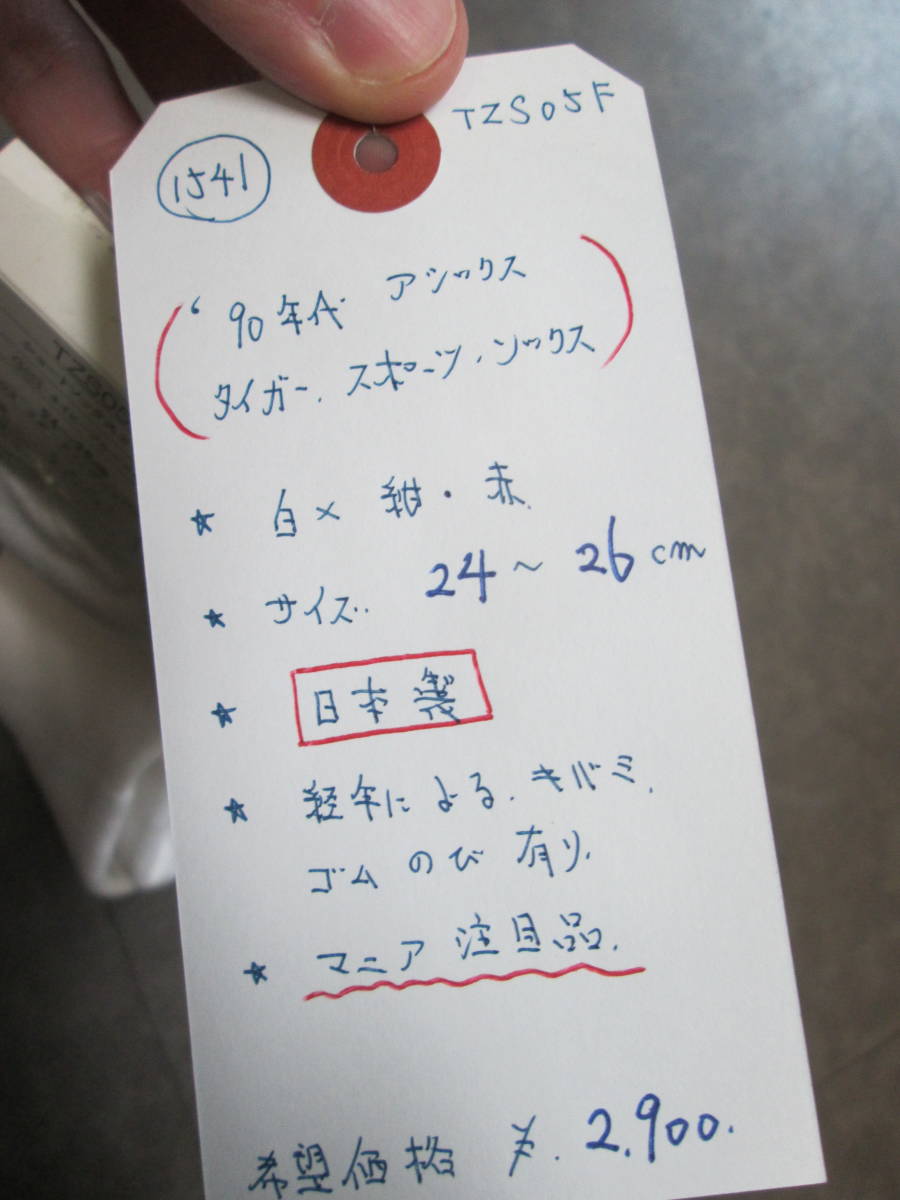 TZS05F
1541
'90年代 アシックス
タイガー.スポーツ.ソックス
★ 白×紺・赤.
★ サイズ.. 24～26cm
★ 日本製
★ 経年による.キバミ.
ゴムのび有り.
★ マニア注目品.
希望価格 ¥.2.900.
TZS05